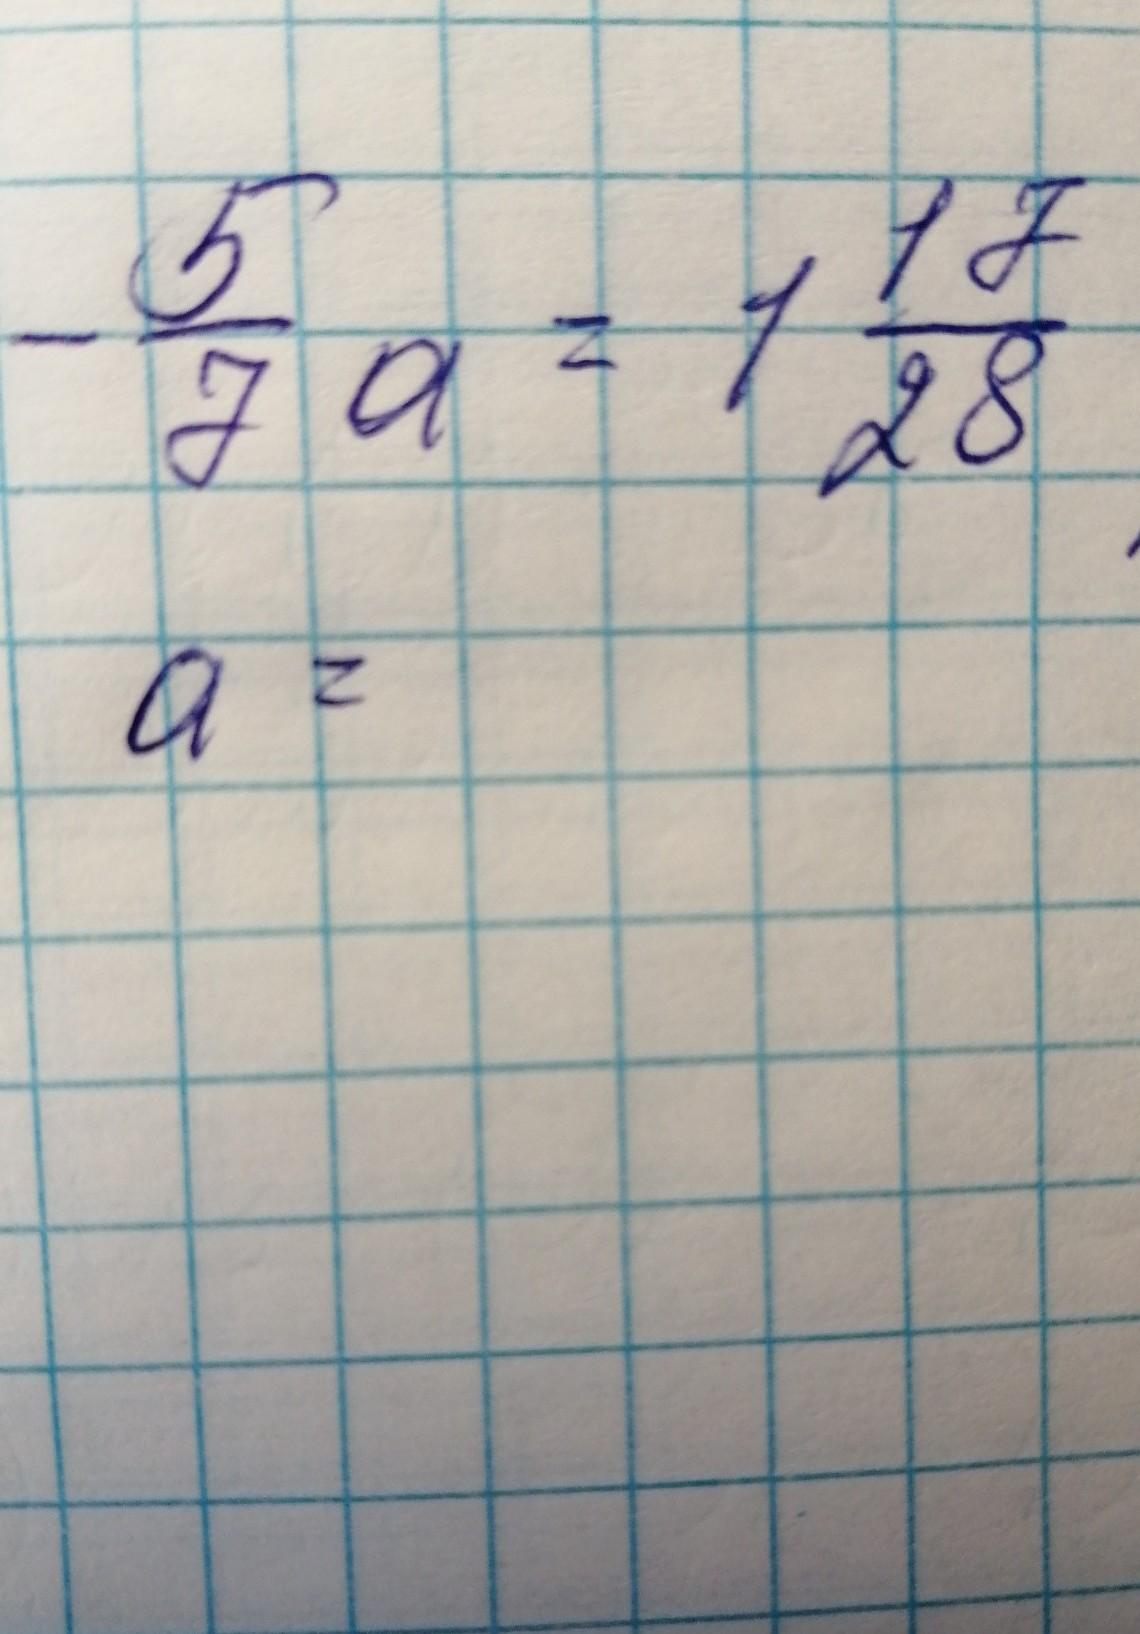 -5/7 a = 1 17/28
a =